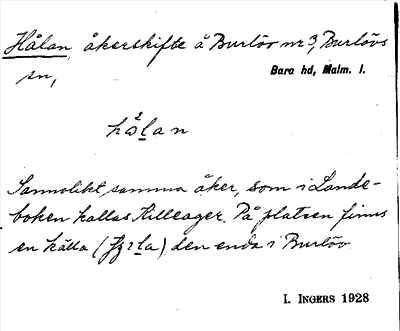 Hålan, åkerskifte å Burlöv nr 3, Burlövs
sn,
Bara hd, Malm. l.
hålan
Sannolikt samma åker, som i Lande-
boken kallas Killeager. På platsen finns
en källa ( ), den enda i Burlöv
I. INGERS 1928